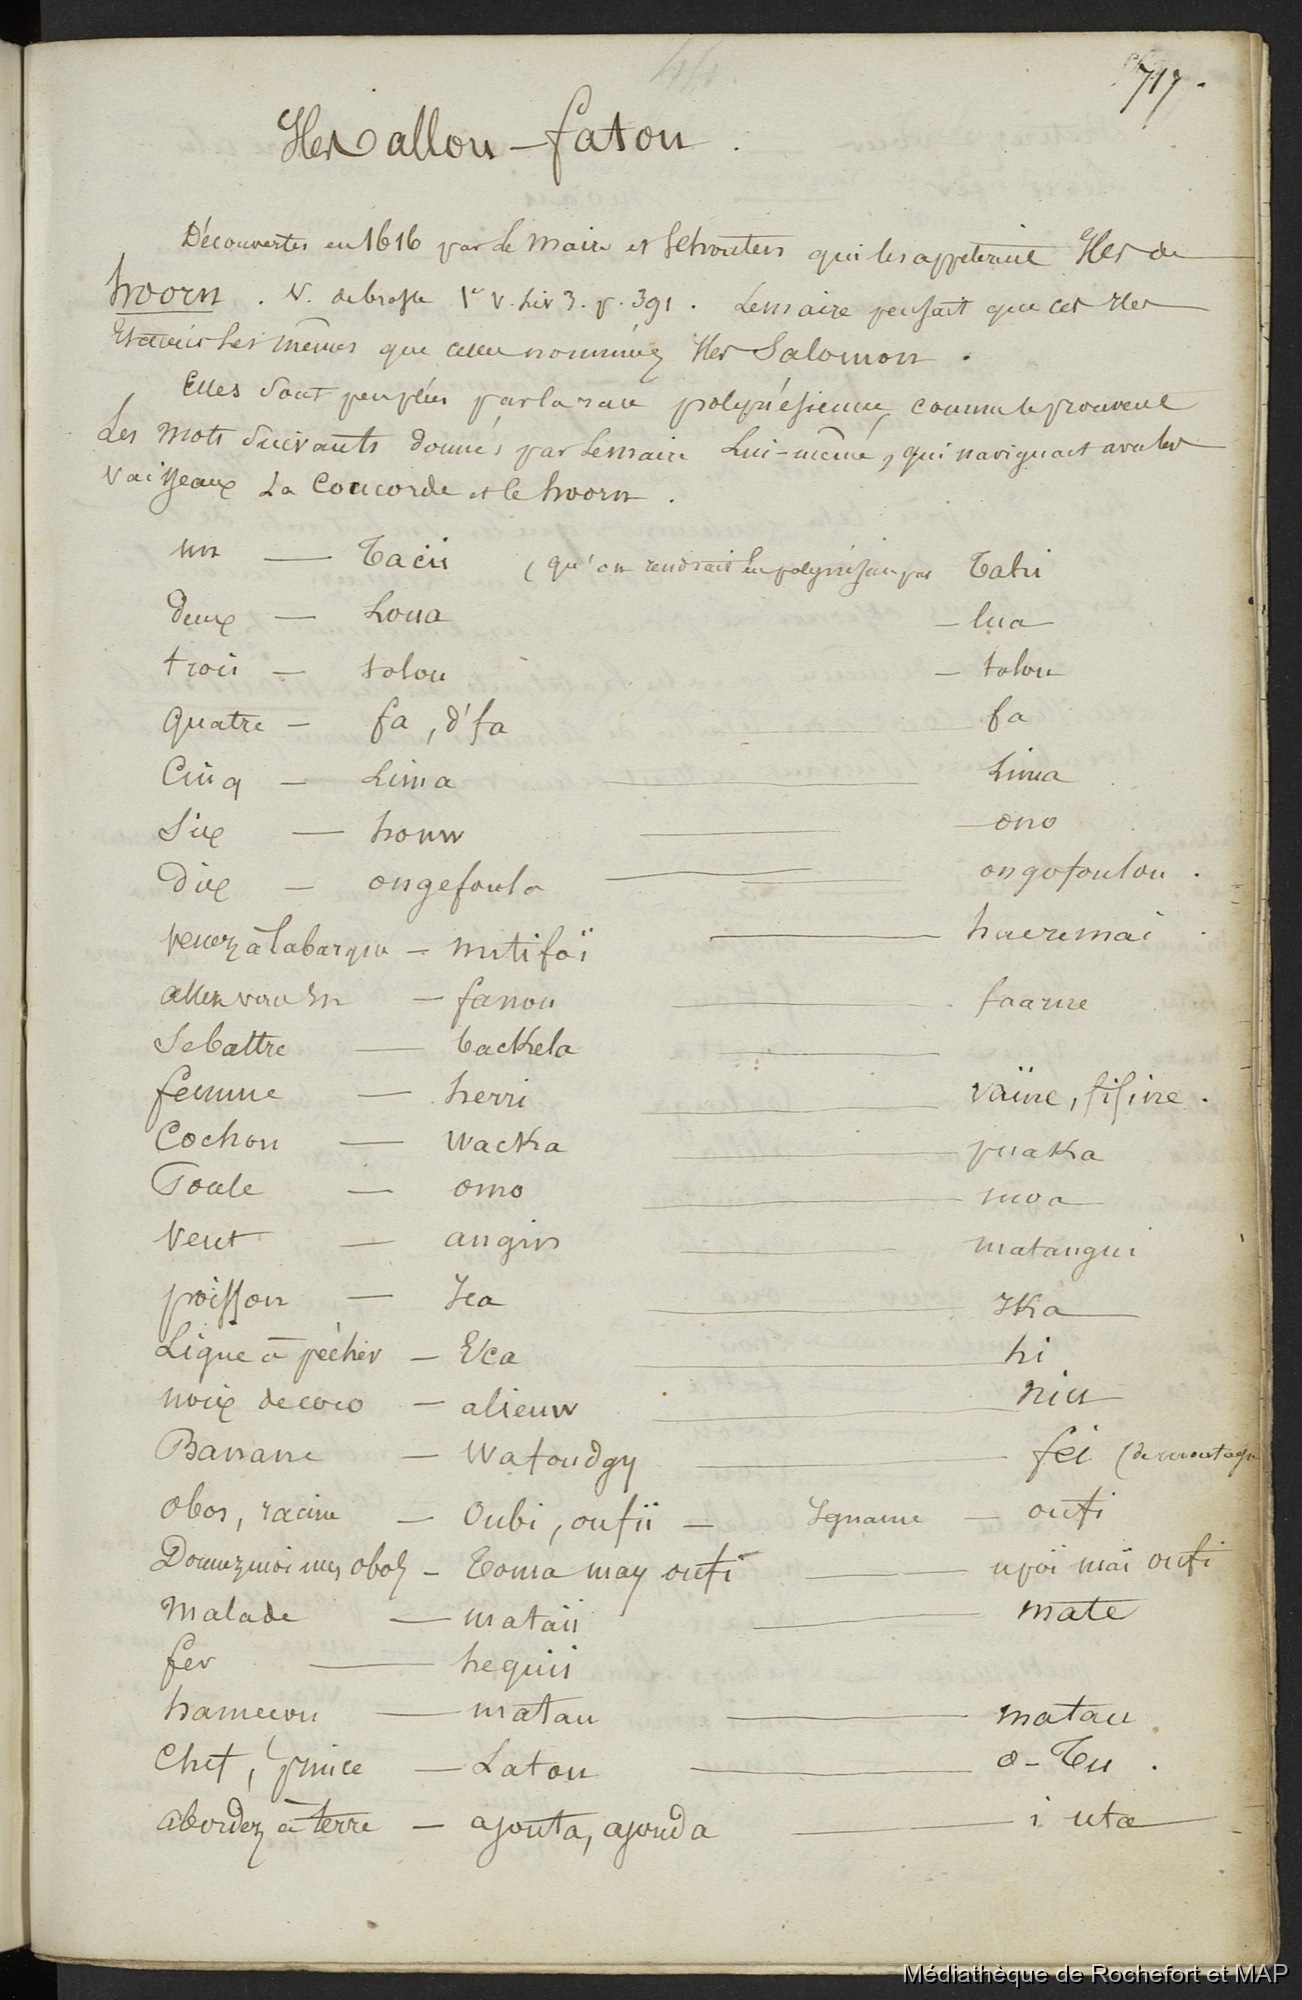 44.
717.
Iles allou-fatou.
Découvertes en 1616 par Le Maire et Schouten qui les appelerent Iles de
hoorn. V. debrosse 1er v. Liv 3. p. 391. Lemaire pensait que ces Iles
Etaient les mêmes que celles nommées Iles Salomon.
Elles sont peuplées par la race polynésienne, comme le prouvent
Les mots suivants donnés par Lemaire Lui-même, qui naviguait avec les
vaisseaux La Concorde et le hoorn.
un — Tacii (qu'on rendrait en polynésien par Tahi
deux — Loua — lua
trois — tolou — tolou
quatre — fa, d'fa — fa
Cinq — Lima — Lima
Six — houw — ono
Dix — ongefoula — ongofoulou.
venez à la barque — mitifaï — haeremai.
allez vous en — fanou — faarue
Se battre — tackela
femme — herri — vaïne, fifine.
Cochon — wacka — puaka
Poule — omo — moa
Vent — angin — matangui
poisson — Ica — Ika
Ligne à pêcher — Eca — hi
noix de coco — alieuw — niu
Banane — Watoudgy — fei (de montagne
obos, racine — Oubi, oufii — Igname — oufi
Donnez moi mes obos — Toma may oufi — upoï maï oufi
Malade — mataii — mate
fer — heguii
hameçon — matau — matau
Chef, prince — Latou — o-Tu.
abordez à terre — ajouta, ajouda — i uta
Médiathèque de Rochefort et MAP